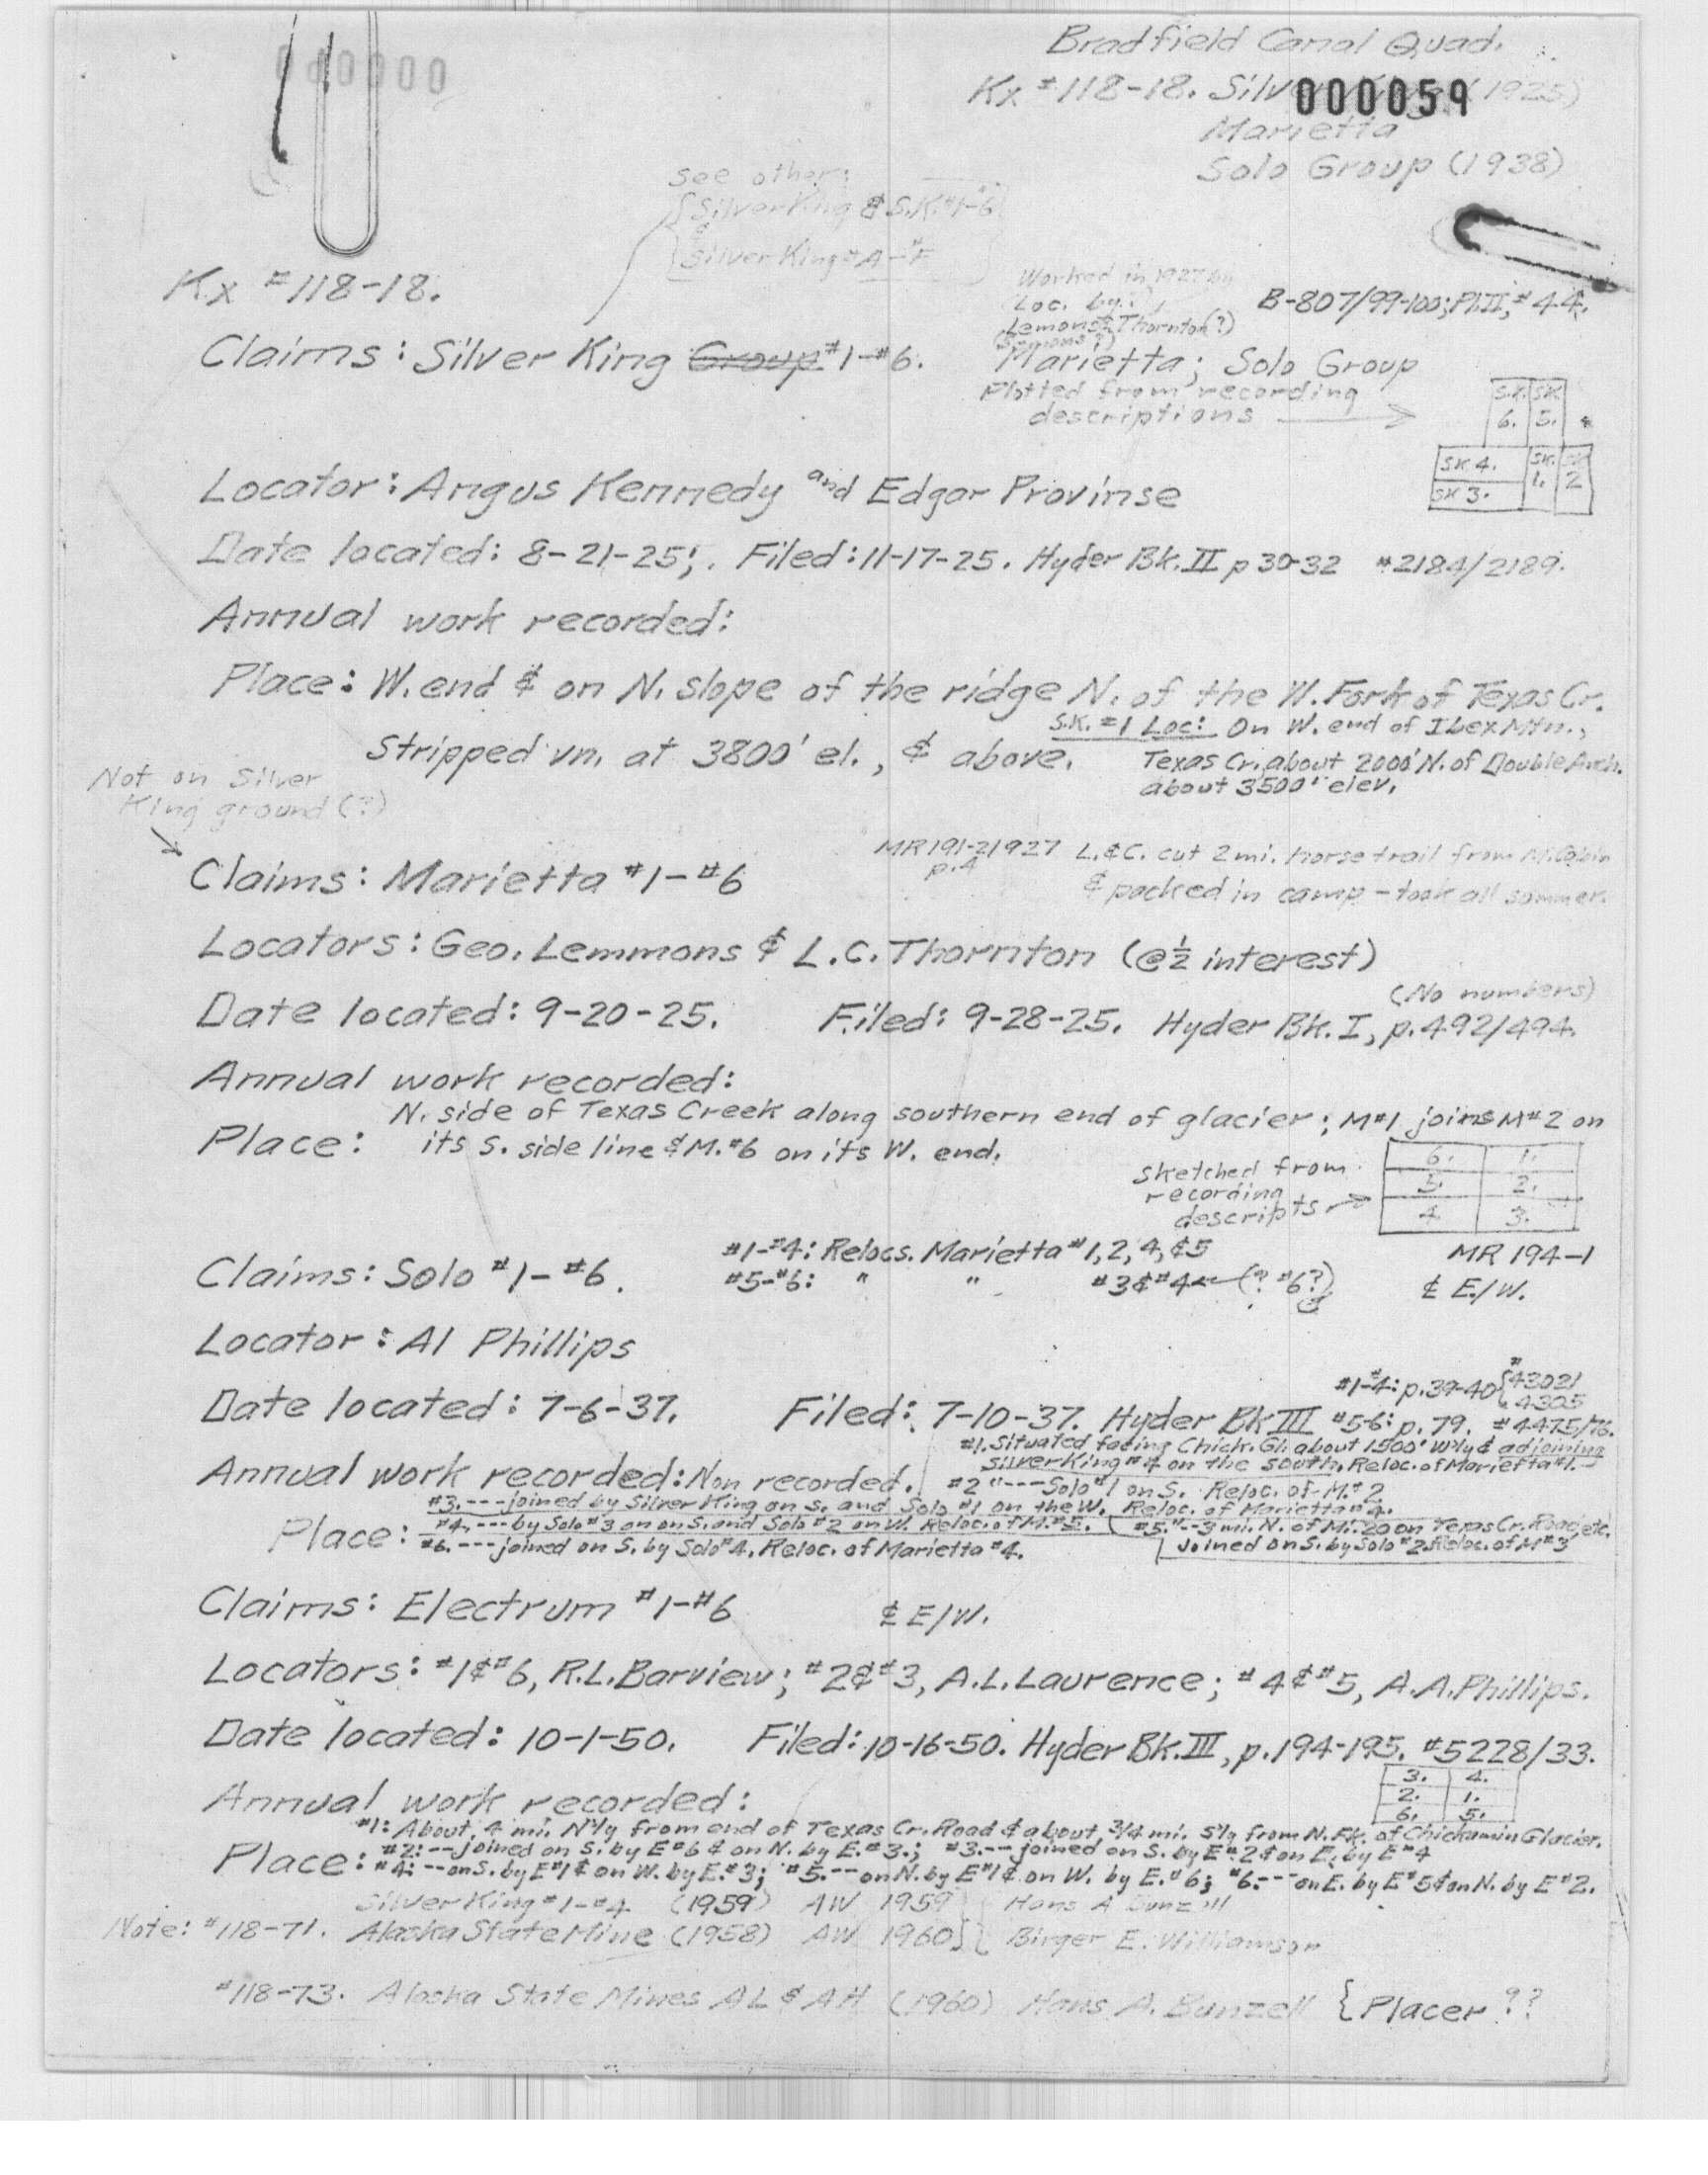 000000
Bradfield Canal Quad.
Kx #118-18. Silver King (1925)
000059
Marietta
Solo Group (1938)
See other:
Silver King & S.K. #1-6
&
Silver King #A-#F
Kx #118-18.
Worked in 1927 by
Loc. by:
Lemons & Thornton(?)
B-807/99-100; Pl.II, #44.
Claims: Silver King Group #1-#6. Marietta; Solo Group
Plotted from recording
descriptions
S.K. 6. SK 5.
SK 4. SK. 1. SK 2
SK 3.
Locator: Angus Kennedy and Edgar Provinse
Date located: 8-21-25; Filed: 11-17-25. Hyder Bk. II p 30-32 #2184/2189.
Annual work recorded:
Place: W. end & on N. slope of the ridge N. of the W. Fork of Texas Cr.
S.K. #1 Loc: On W. end of Ibex Mtn.,
Stripped vn. at 3800' el., & above. Texas Cr. about 2000' N. of Double Anch.
about 3500' elev.
Not on Silver
King ground (?)
MR 191-2 1927 L.&C. cut 2 mi. horse trail from M. Cabin
p.4 & packed in camp - took all summer.
Claims: Marietta #1-#6
Locators: Geo. Lemmons & L.C. Thornton (@ ½ interest)
(No numbers)
Date located: 9-20-25. Filed: 9-28-25. Hyder Bk. I, p. 492/494.
Annual work recorded:
N. side of Texas Creek along southern end of glacier; M#1 joins M#2 on
Place: its S. side line & M.#6 on its W. end.
Sketched from
recording
descripts
6. 1.
5. 2.
4 3.
#1-#4: Relocs. Marietta #1, 2, 4, & 5 MR 194-1
Claims: Solo #1-#6. #5-#6: " " #3 & #4 (? #6?) & E/W.
Locator: Al Phillips
#1-4: p. 39-40 {#43021
4305
Date located: 7-6-37. Filed: 7-10-37. Hyder Bk III #5-6: p. 79. #4475/76.
#1. Situated facing Chick. Gl. about 1500' W'ly & adjoining
Silver King #4 on the south. Reloc. of Marietta #1.
Annual work recorded: Non recorded. #2 "---- Solo #1 on S. Reloc. of M.#2
#3. --- joined by Silver King on S. and Solo #1 on the W. Reloc. of Marietta #4.
Place: #4. --- by Solo #3 on on S. and Solo #2 on W. Reloc. of M.#5. #5."--3 mi. N. of Mi. 20 on Texas Cr. Road, etc.
#6. --- joined on S. by Solo #4, Reloc. of Marietta #4. Joined on S. by Solo #2. Reloc. of M#3
Claims: Electrum #1-#6 & E/W.
Locators: #1 & #6, R.L. Barview; #2 & #3, A.L. Laurence; #4 & #5, A.A. Phillips.
Date located: 10-1-50. Filed: 10-16-50. Hyder Bk. III, p. 194-195. #5228/33.
3. 4.
2. 1.
6. 5.
Annual work recorded:
#1: About 4 mi. N'ly from end of Texas Cr. Road & about 3/4 mi. S'ly from N. Fk. of Chickamin Glacier.
Place: #2: -- joined on S. by E#6 & on N. by E.#3.; #3. -- joined on S. by E#2 & on E. by E#4
#4: -- on S. by E#1 & on W. by E.#3; #5. -- on N. by E#1 & on W. by E.#6; #6. -- on E. by E#5 & on N. by E#2.
Silver King #1-#4 (1959) AW 1959 Hans A Bunzell
Note: #118-71. Alaska State Mine (1958) AW 1960 Birger E. Williamson
#118-73. Alaska State Mines AL & AH (1960) Hans A. Bunzell { Placer ??